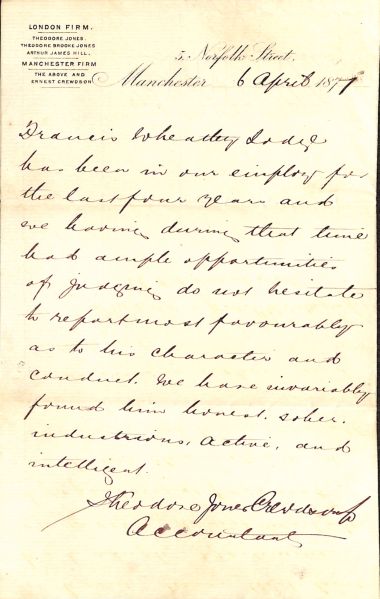 LONDON FIRM.
THEODORE JONES.
THEODORE BROOKE JONES
ARTHUR JAMES HILL.
MANCHESTER FIRM
THE ABOVE AND
ERNEST CREWDSON
5, Norfolk Street.
Manchester 6 April 1877
Francis Wheatley Lodge
has been in our employ for
the last four years and
we having during that time
had ample opportunities
of judging do not hesitate
to report most favourably
as to his character and
conduct. We have invariably
found him honest, sober,
industrious, active, and
intelligent.
Theodore Jones Crewdson &
Accountants